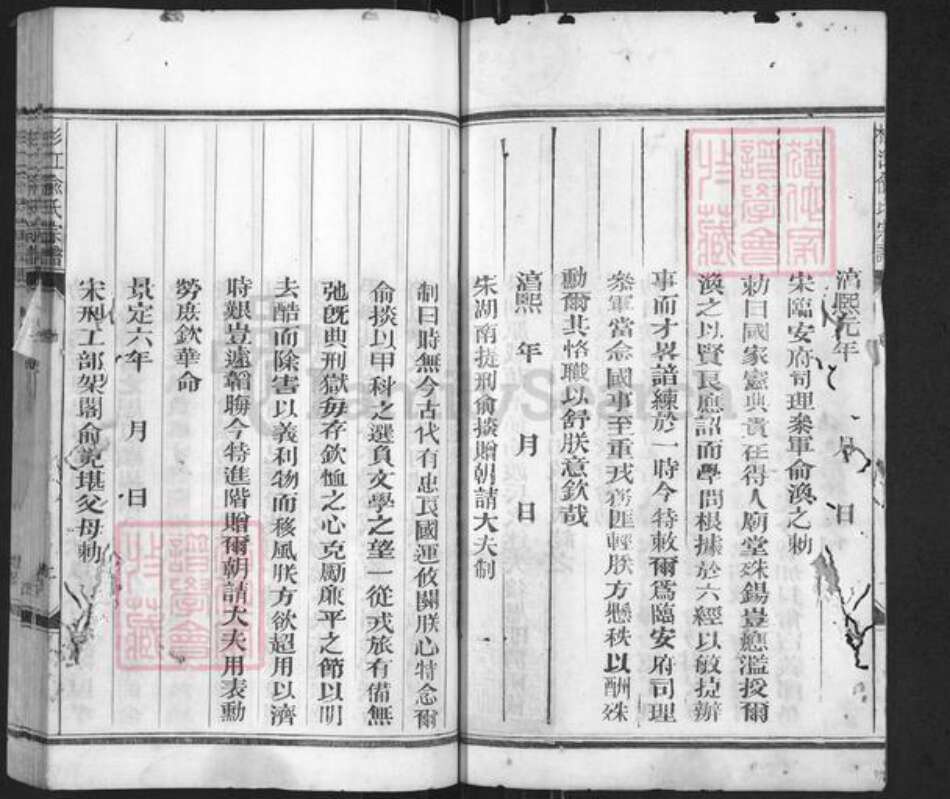 淳熙元年 月 日
宋臨安府司理叅軍俞渙之勅
勅曰國家憲典貴在得人廟堂殊錫豈應濫授爾
渙之以賢良應詔而學問根據於六經以敏捷辦
事而才畧諳練於一時今特敕爾爲臨安府司理
叅軍當念國事至重戎務匪輕朕方懸秩以酬殊
勳爾其恪職以舒朕意欽哉
淳熙 年 月 日
宋湖南提刑俞掞贈朝請大夫制
制曰時無今古代有忠良國運攸關朕心特念爾
俞掞以甲科之選負文學之望一從戎旅有備無
弛旣典刑獄每存欽恤之心克勵廉平之節以明
去酷而除害以義利物而移風朕方欲超用以濟
時艱豈遽韜晦今特進階贈爾朝請大夫用表勳
勞庶欽華命
景定六年 月 日
宋刑工部架閣俞 堪父母勅
俞氏宗譜
FamilySearch